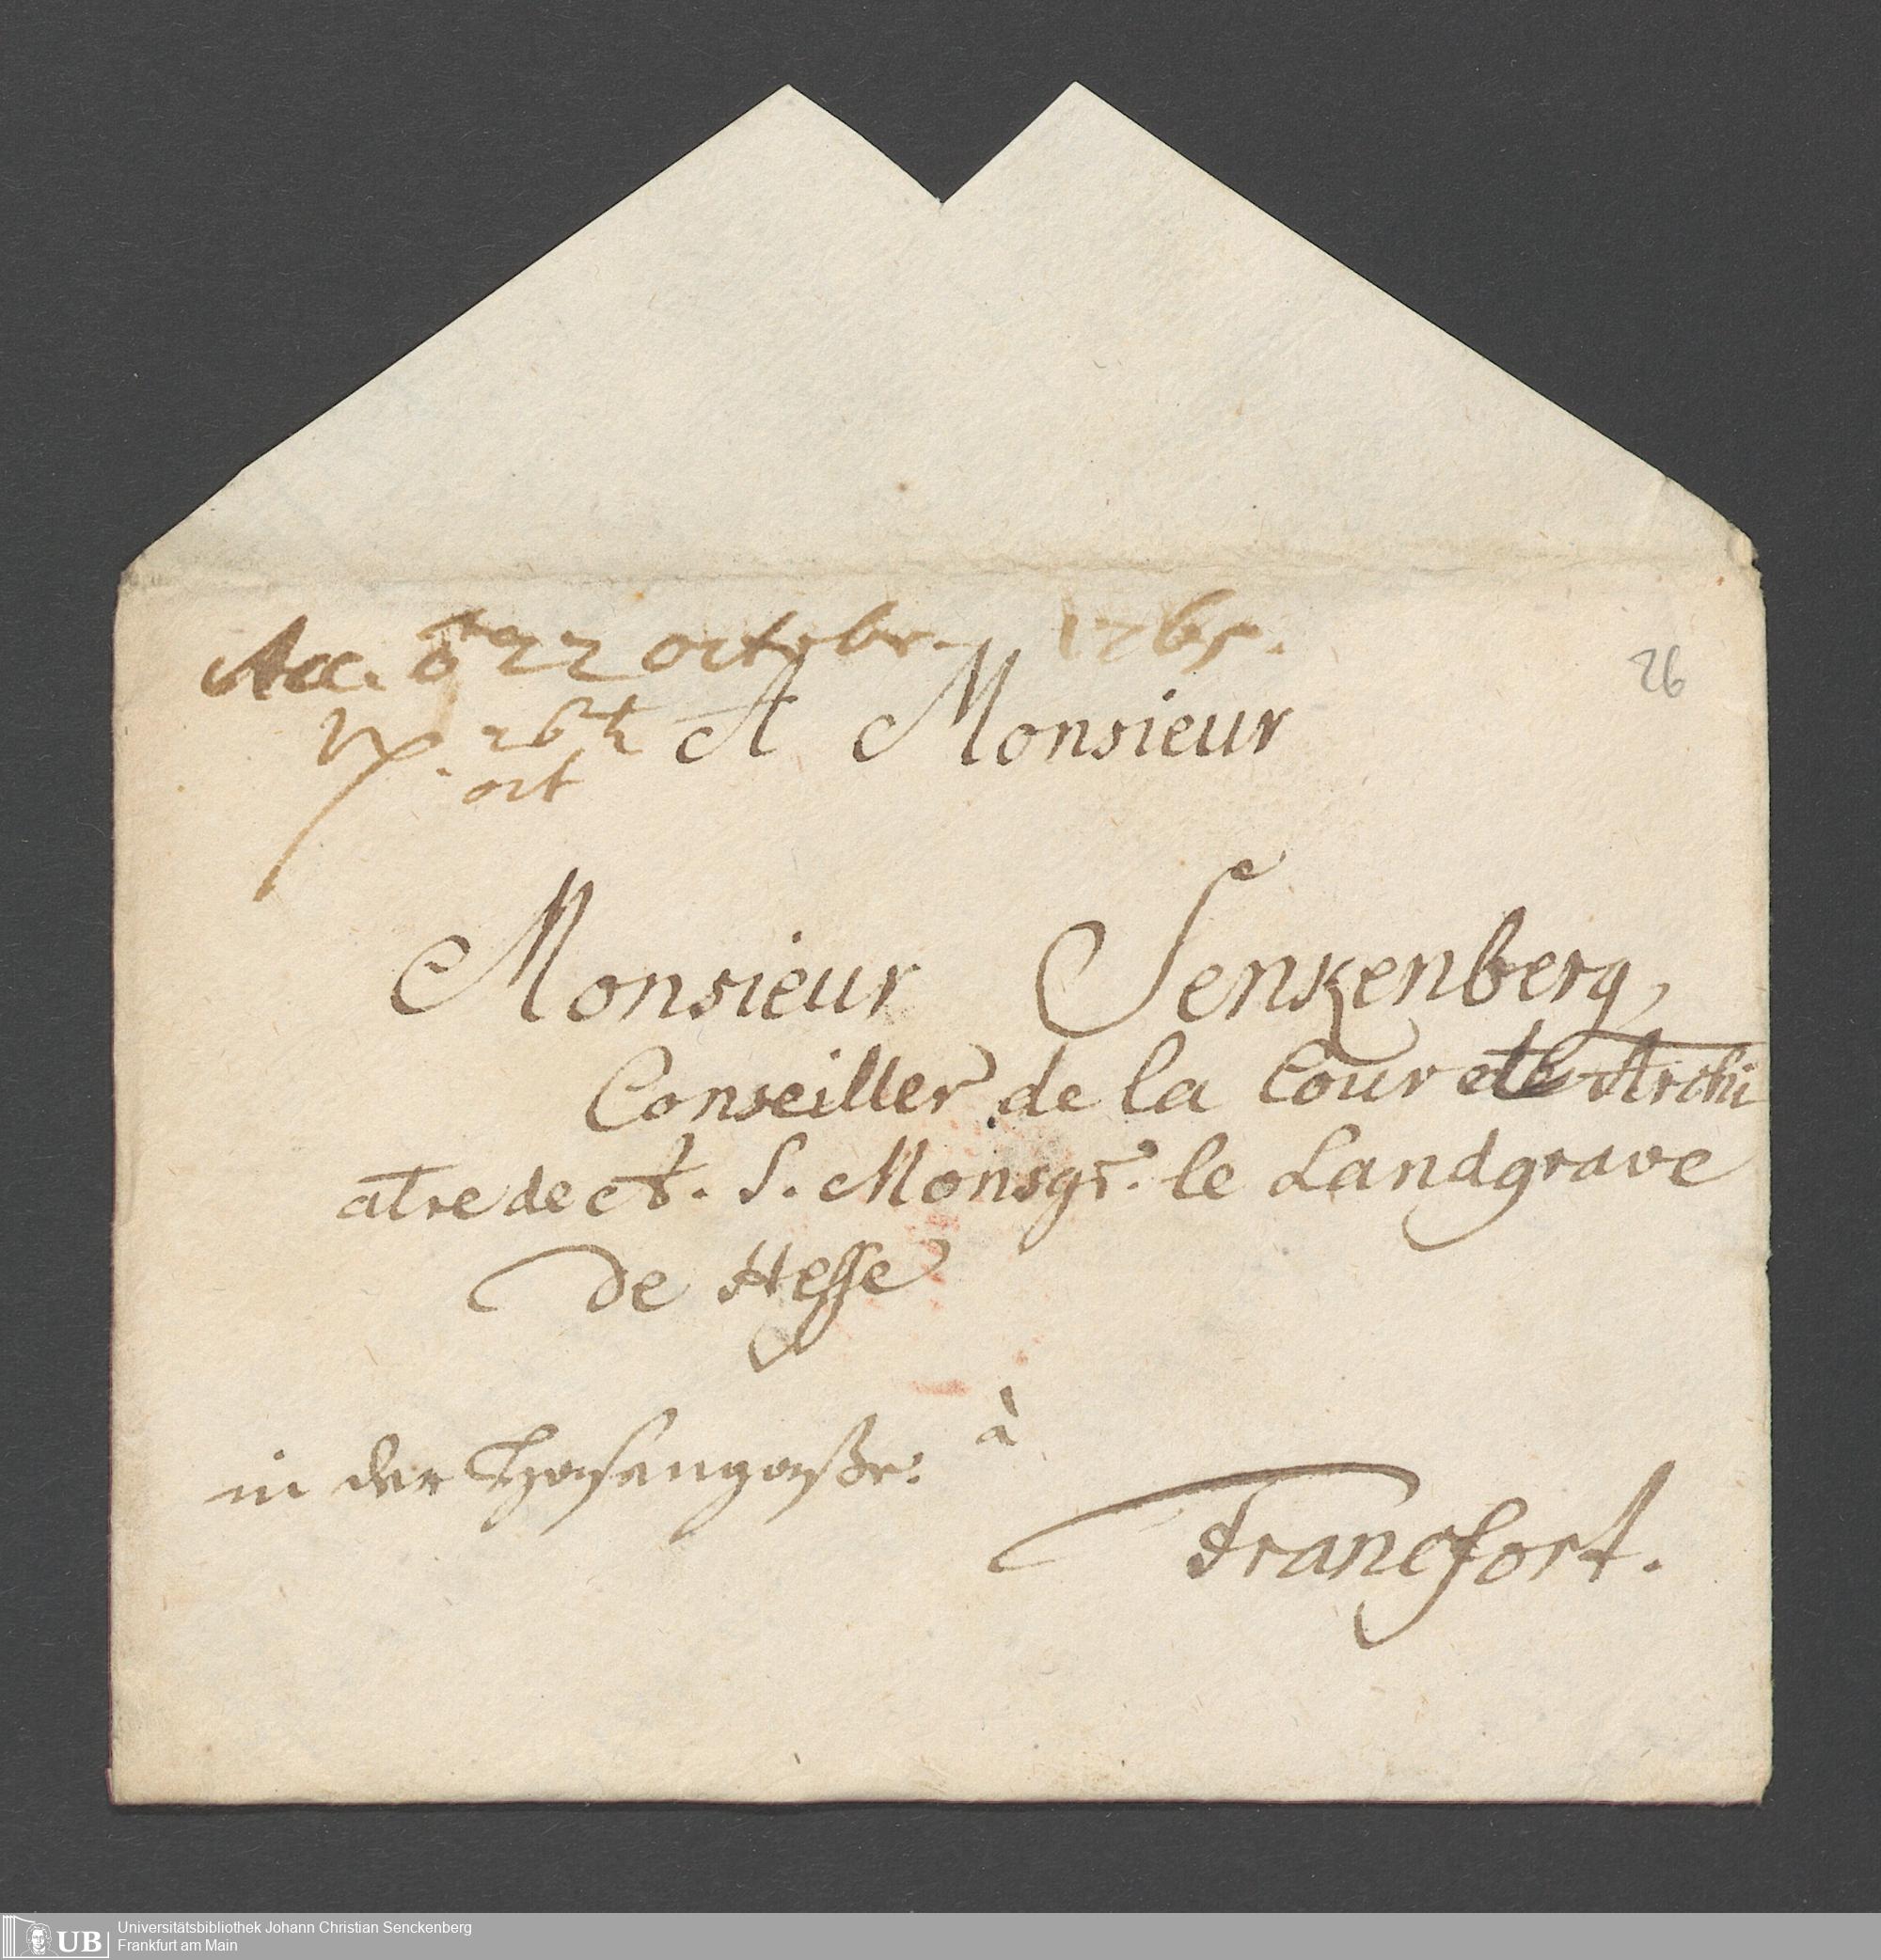 Acc. d 22 octobr. 1765.
26
Rp. 26t.
oct
A Monsieur
Monsieur Senkenberg,
Conseiller de la Cour et Archi
atre de A. S. Monsgr. le Landgrave
de Hesse
à
in der Hasengaße.
Francfort.
UB
Universitätsbibliothek Johann Christian Senckenberg
Frankfurt am Main